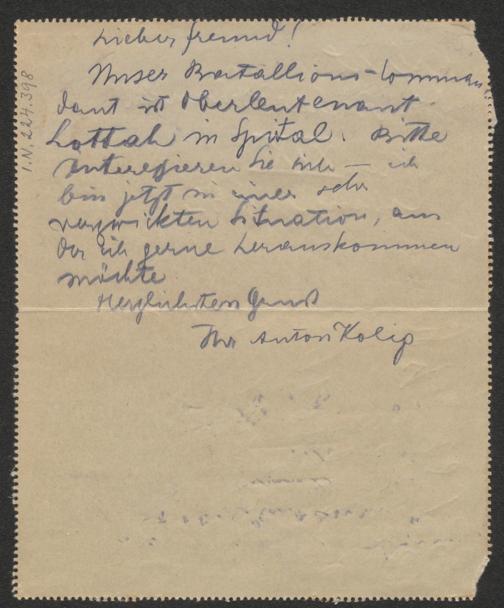 Lieber Freund!
Unser Batallions-Comman
dant ist Oberleutenant
Lottak in Spital. Bitte
interessieren Sie sich — ich
bin jetzt in einer sehr
verzwickten Situation, aus
der ich gerne herauskommen
möchte
Herzlichsten Gruß
Ihr Anton Kolig
I.N. 224.398